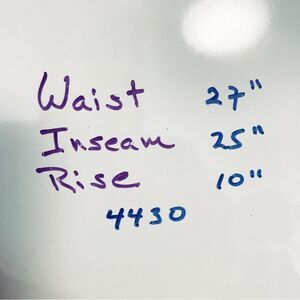 Waist 27"
Inseam 25"
Rise 10"
4430